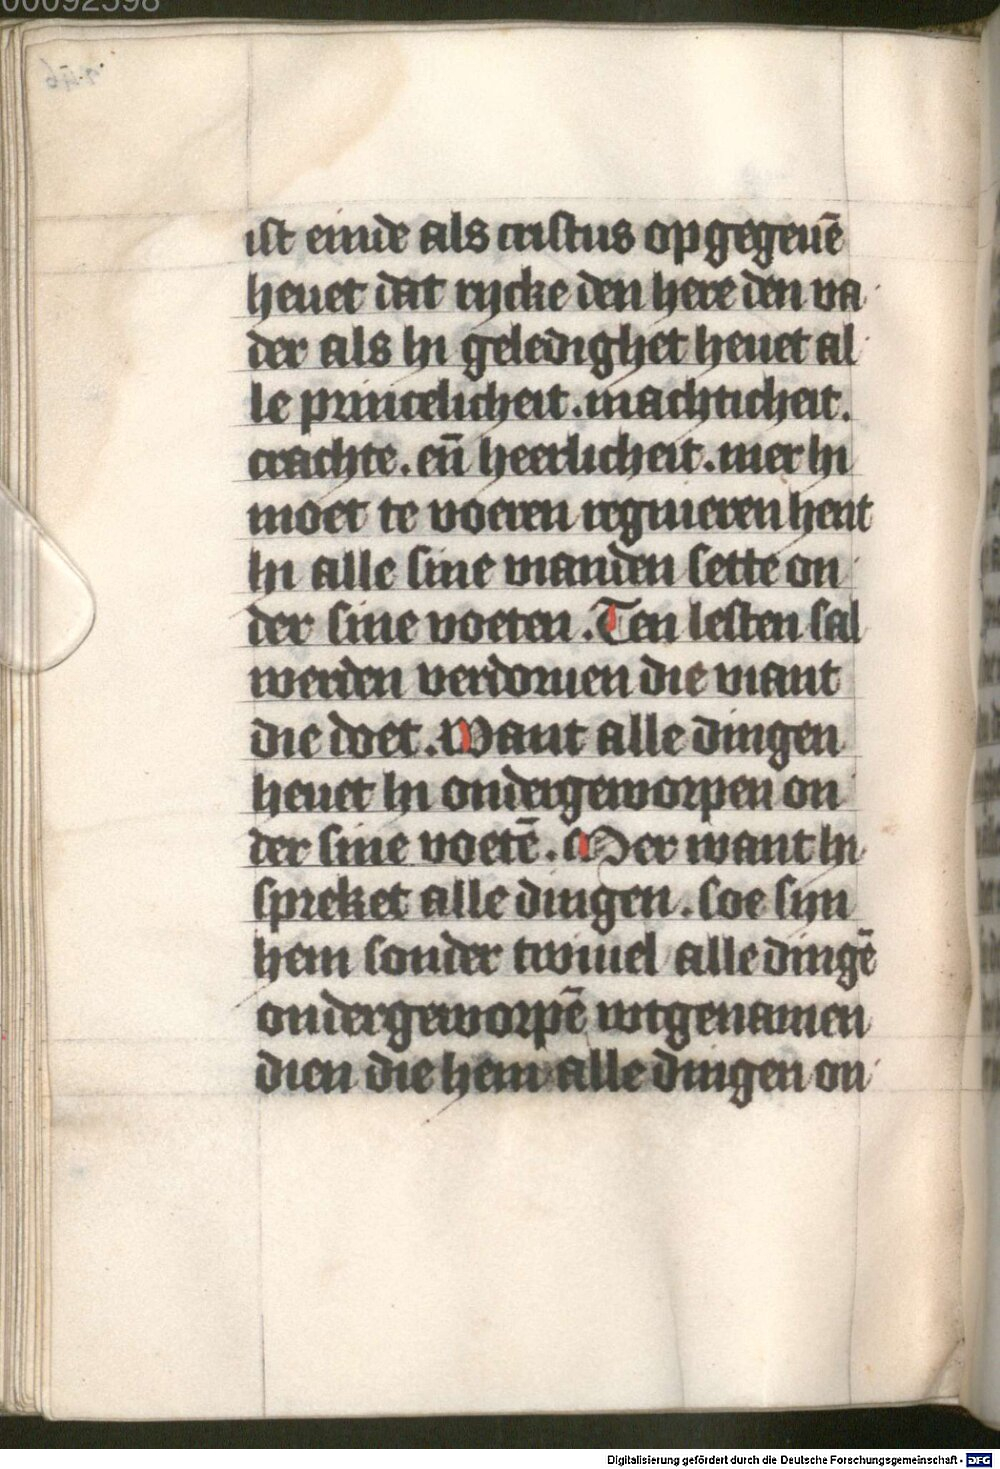 00092598
ist einde als cristus opgegeuē
heuet dat rycke den here den va
der als hi geledighet heuet al
le princelicheit. machticheit.
crachte. en̄ heerlicheit. mer hi
moet te voeren regnieren hent
hi alle sine vianden sette on
der sine voeten. Ten lesten sal
werden verdoruen die viant
die doet. Want alle dingen
heuet hi ondergeworpen on
der sine voetē. Mer want hi
spreket alle dingen. soe sijn
hem sonder twiuel alle dingē
ondergeworpē wtgenamen
dien die hem alle dingen on
Digitalisierung gefördert durch die Deutsche Forschungsgemeinschaft - DFG